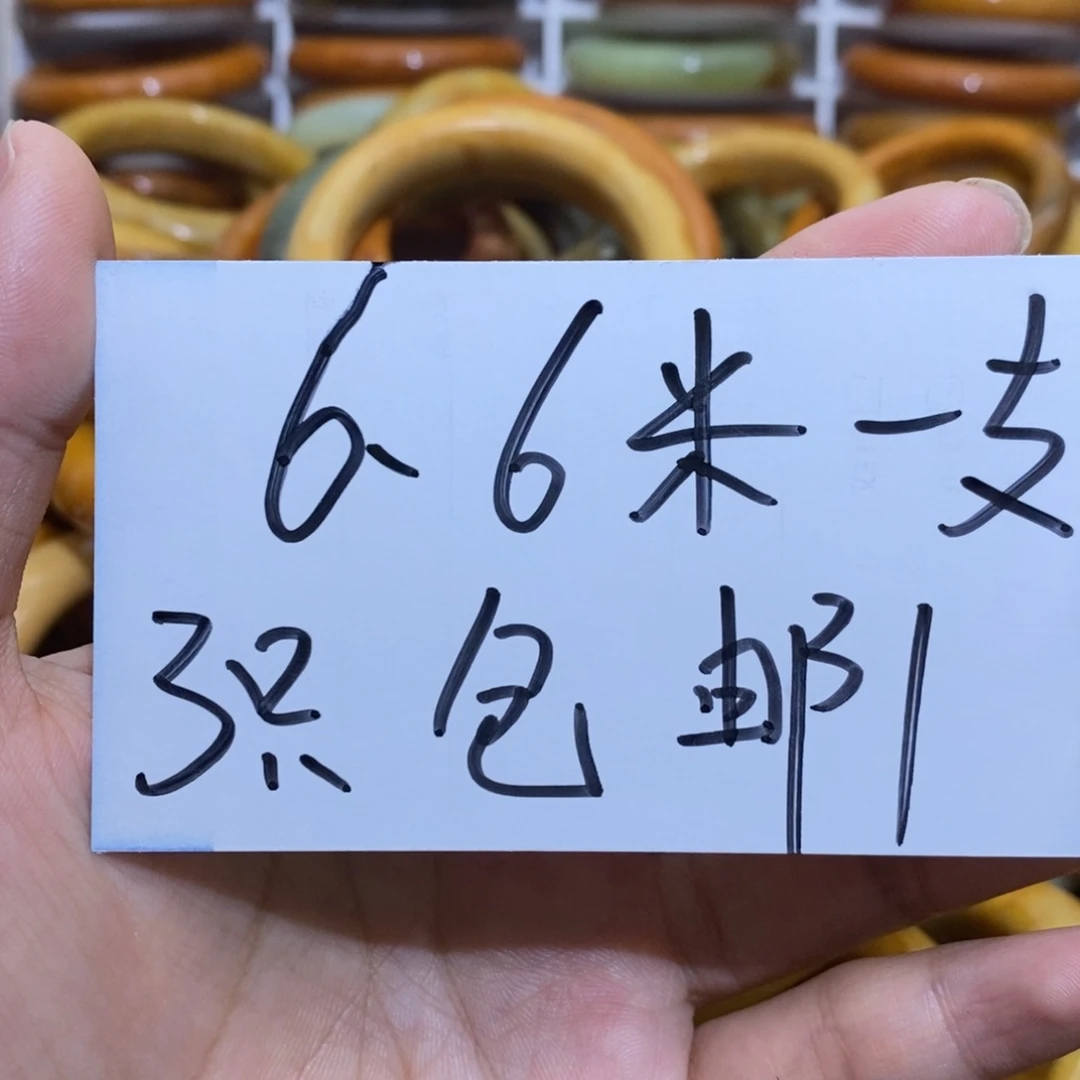 6.6米一支
3只包邮！